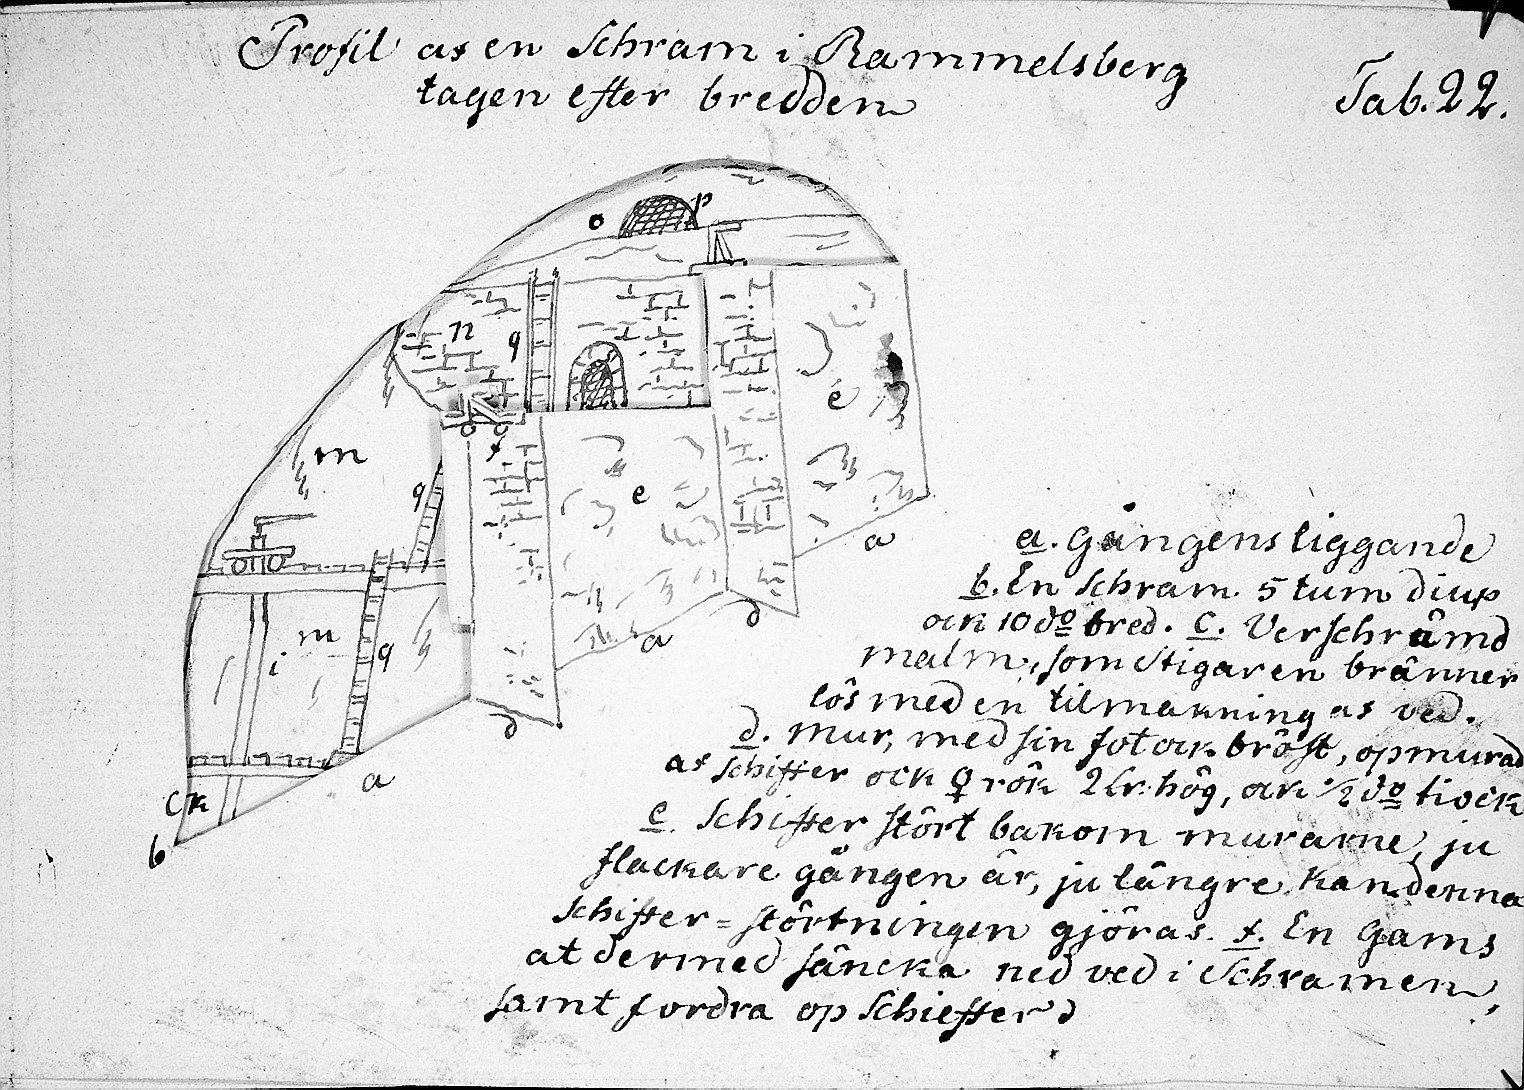 Profil af en Schram i Rammelsberg
tagen efter bredden
Tab. 22.
o p
n q
é
f
m
q
e
a
m
i
q
d
a
d
a
c k
b
a. Gångens liggande
b. En Schram 5 tum diup
ock 10 do bred. C. Verschrämd
malm, som Stigaren bränner
lös med en tilmakning af ved.
d. mur, med sin fot ock bröst, opmurad
af schiffer ock ♀ rök 2 lr. hög, ock ½ do tiock
e. Schiffer stört bakom murarne, ju
flackare gången är, ju längre kan denna
Schiffer=störtningen gjöras. f. En Gams
at dermed säncka ned ved i Schramen,
samt fordra op Schieffer